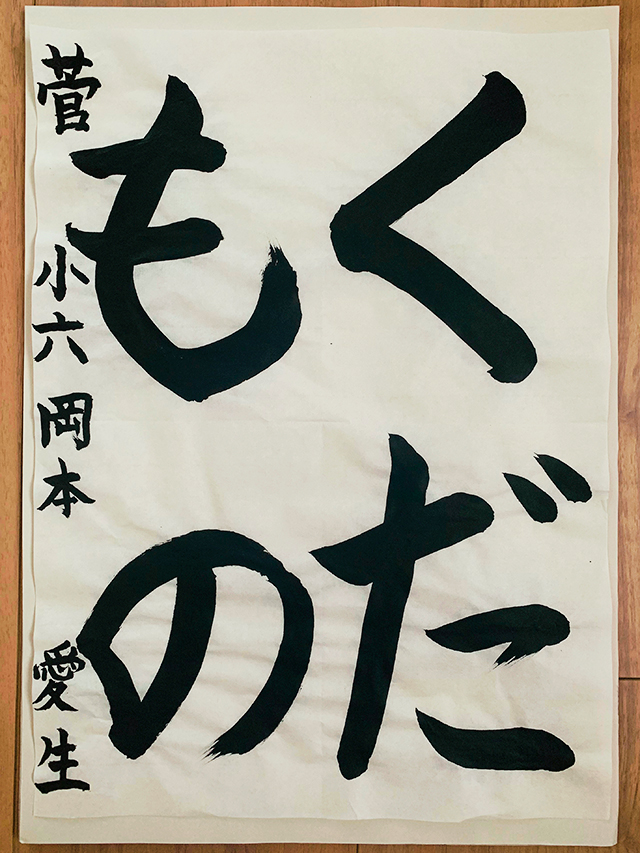 くだ
もの
菅 小六 岡本 愛生